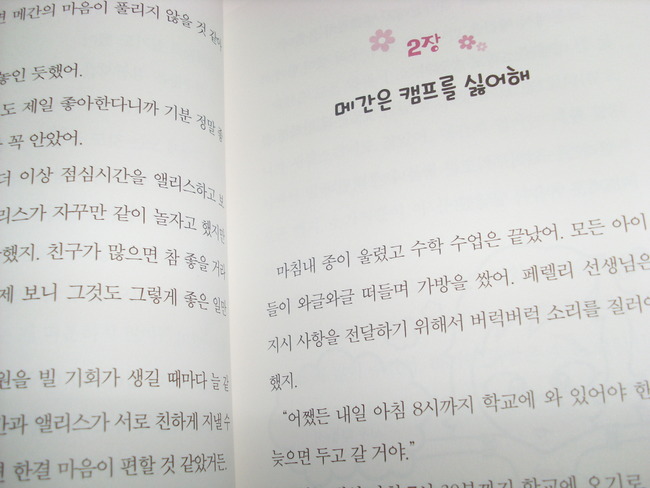 면 메간의 마음이 풀리지 않을 것 같아
놓인 듯했어.
도 제일 좋아한다니까 기분 정말
꼭 안았어.
더 이상 점심시간을 앨리스하고 보
리스가 자꾸만 같이 놀자고 했지만
했지. 친구가 많으면 참 좋을 거라
제 보니 그것도 그렇게 좋은 일만
원을 빌 기회가 생길 때마다 늘 같
간과 앨리스가 서로 친하게 지낼 수
면 한결 마음이 편할 것 같았거든.
2장
메간은 캠프를 싫어해
마침내 종이 울렸고 수학 수업은 끝났어. 모든 아이
들이 와글와글 떠들며 가방을 쌌어. 페렐리 선생님은
지시 사항을 전달하기 위해서 버럭버럭 소리를 질러야
했지.
“어쨌든 내일 아침 8시까지 학교에 와 있어야 한
늦으면 두고 갈 거야.”
학교에 오기로